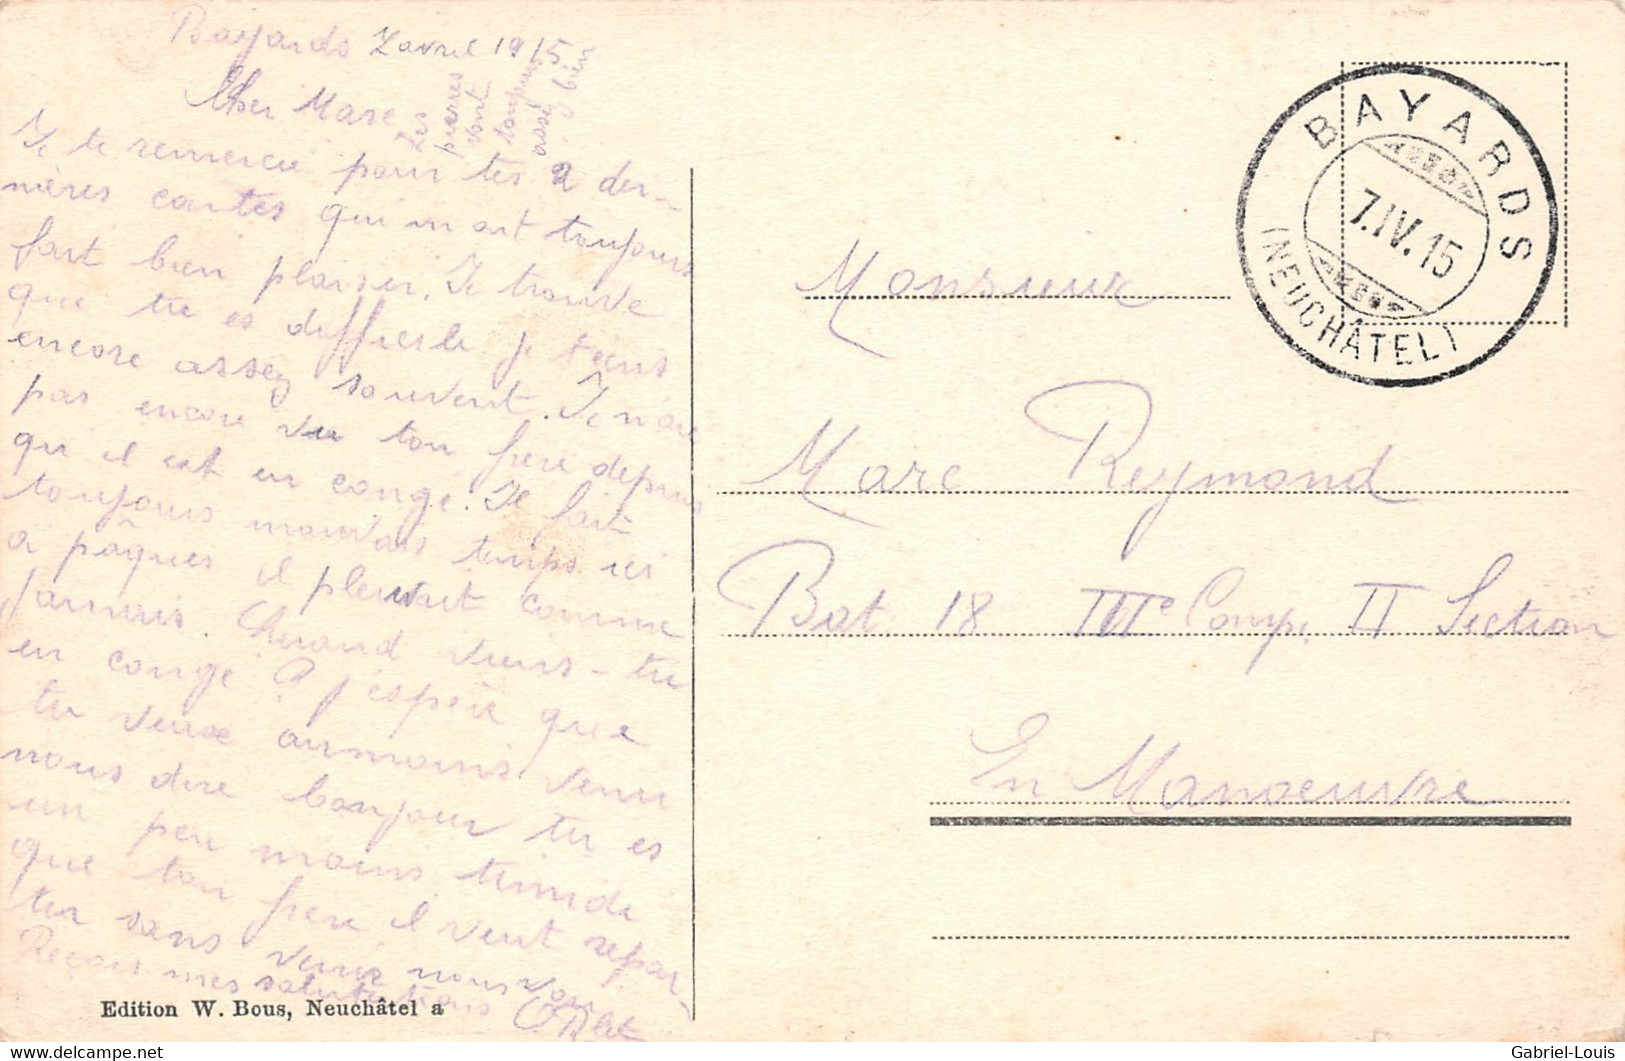 Bayards 7 avril 1915
Cher Marc
Les
pierres
vont
toujours
assez bien
Je te remercie pour tes 2 der-
nières cartes qui m'ont toujours
fait bien plaisir. Je trouve
que tu es difficile je t'écris
encore assez souvent. Je n'ai
pas encore vu ton frère depuis
qu'il est en congé. Il fait
toujours mauvais temps ici
a pâques il pleuvait comme
jamais. Quand viens-tu
en congé? J'espère que
tu veux aumoins venir
nous dire bonjour tu es
un peu moins timide
que ton frère il veut repar-
tir sans venir nous voir
Reçois mes salutations
Edition W. Bous, Neuchâtel a
BAYARDS
7.IV.15
(NEUCHÂTEL)
Monsieur
Marc Reymond
Bat. 18 IIIe Comp. II Section
En Manoeuvre
Gabriel-Louis